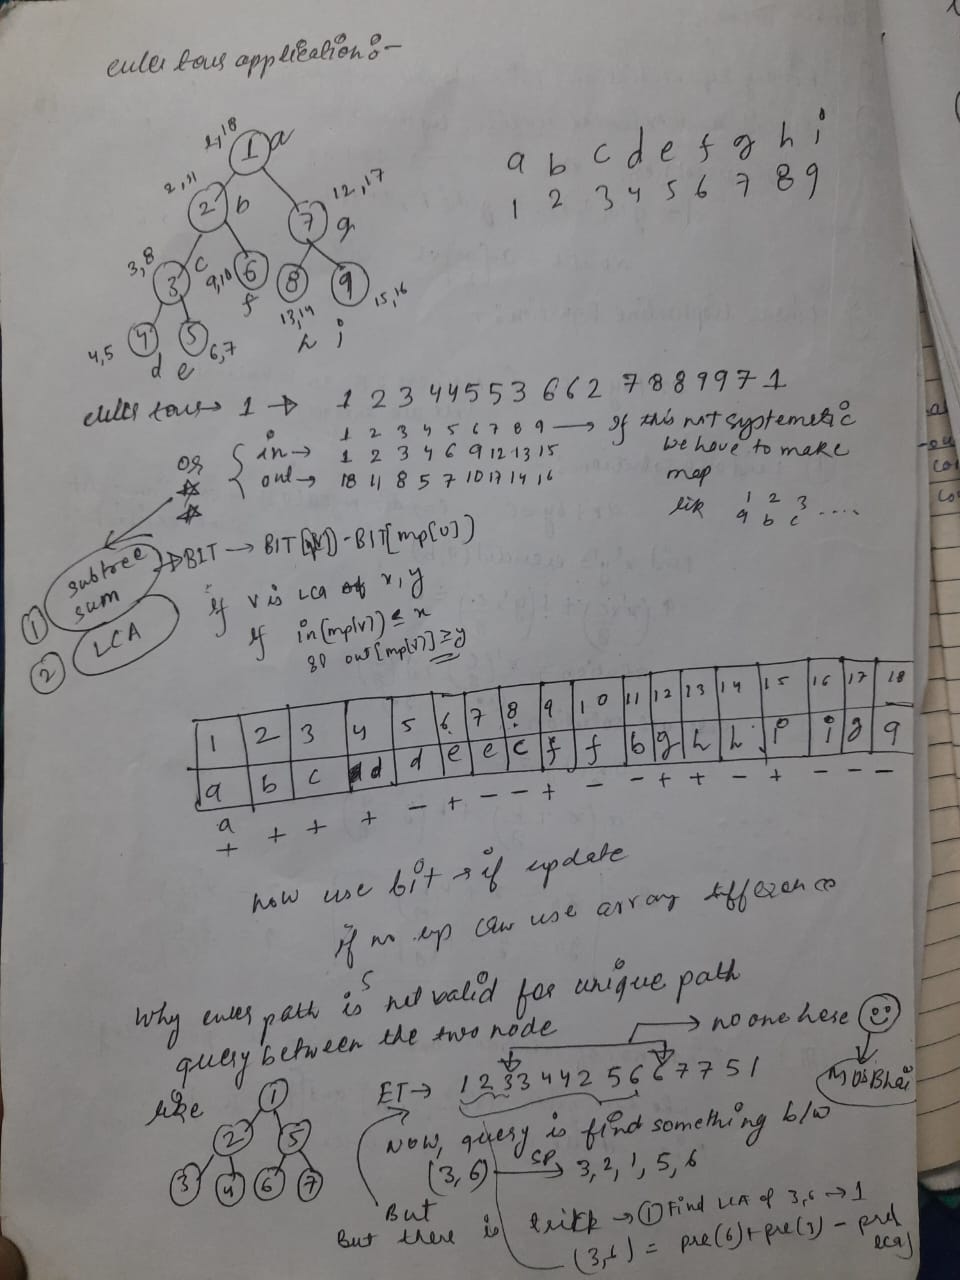 euler tour application :-
1,18
1 a
a b c d e f g h i
1 2 3 4 5 6 7 8 9
2,11
2 b
12,17
7 g
3,8
3 c
9,10
6 f
8
9
15,16
13,14
h i
4,5
4 5
6,7
d e
euler tour → 1 → 1 2 3 4 4 5 5 3 6 6 2 7 8 8 9 9 7 1
1 2 3 4 5 6 7 8 9 → If this not systemetic
or in → 1 2 3 4 6 9 12 13 15 we have to make
out → 18 11 8 5 7 10 17 14 16 map
lik 1 2 3
a b c ....
① subtree sum → BIT → - BIT[mp[v]]
② LCA
if v is LCA of x, y
if in[mp[v]] ≤ x
out[mp[v]] ≥ y
1 2 3 4 5 6 7 8 9 10 11 12 13 14 15 16 17 18
a b c d d e e c f f b g h h i i g a
a
+ + + + - + - - + - - + + - + - - -
now use bit → if update
if no up can use array difference
Why euler path is not valid for unique path
query between the two node
→ no one here
like
ET → 1 2 3 3 4 4 2 5 6 6 7 7 5 1
Mo's Bhai
1
2 5
3 4 6 7
Now, query is find something b/w
(3,6) SP → 3, 2, 1, 5, 6
But
But there is trikk → ① Find LCA of 3,6 → 1
(3,6) = pre(6) + pre(3) - pre[
lca]